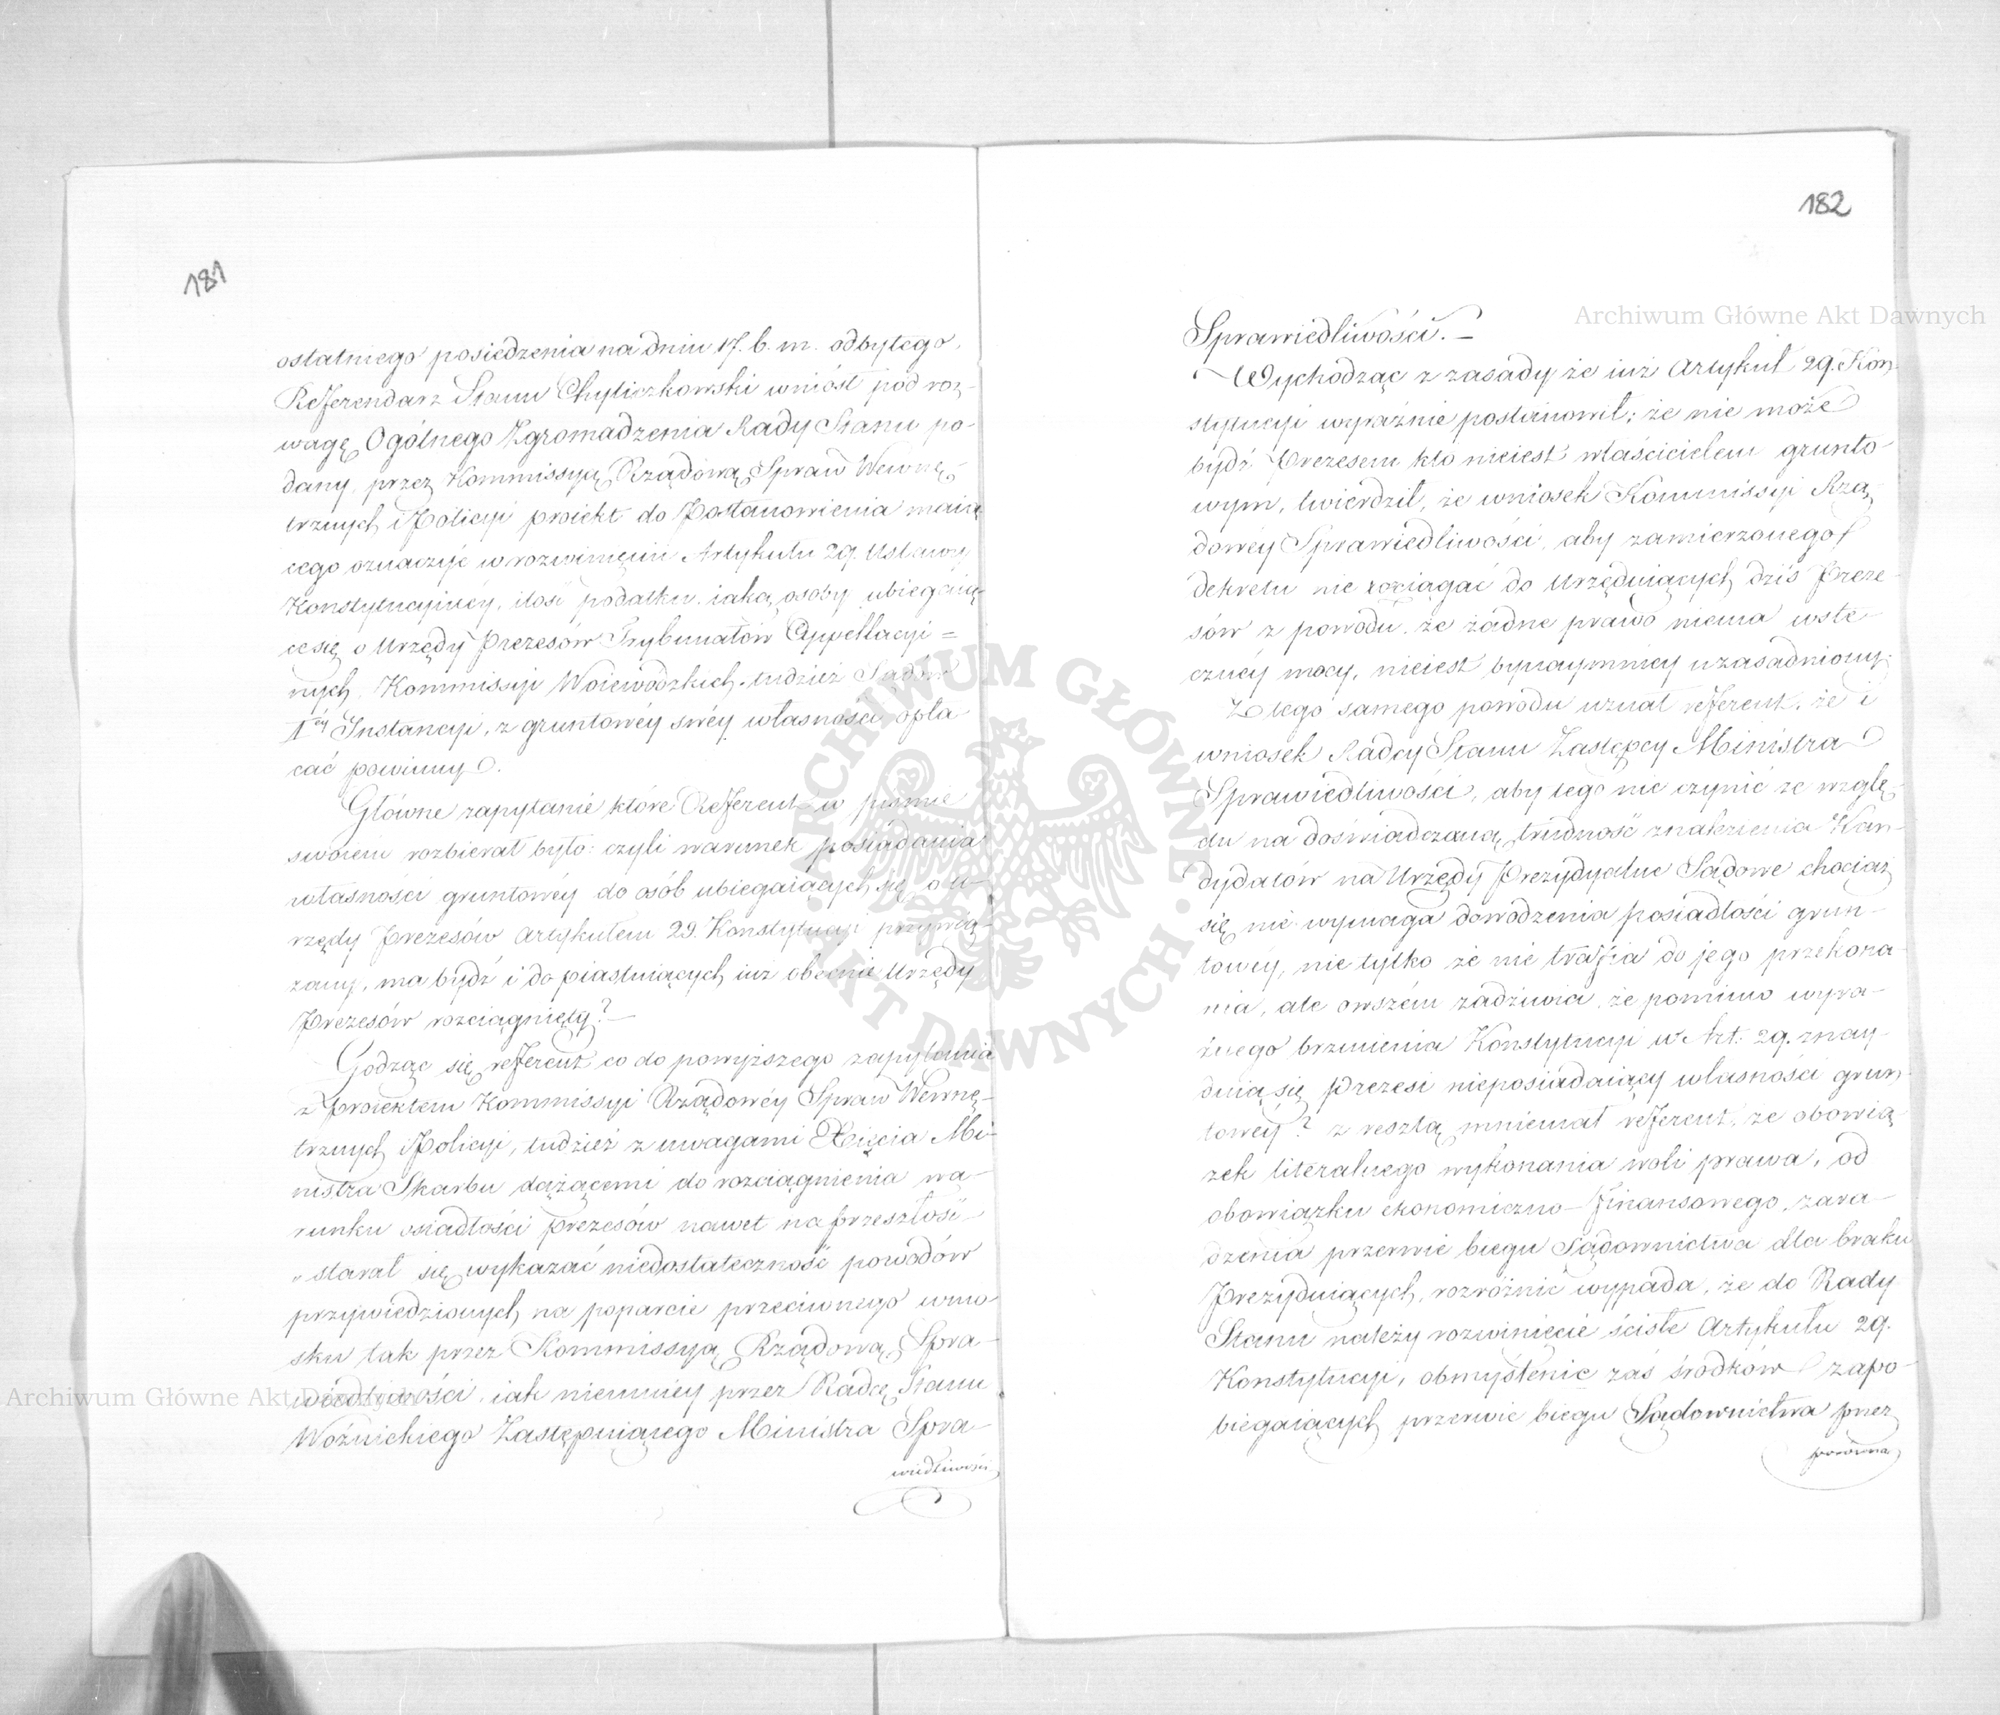 181
ostatniego posiedzenia na dniu 17. b. m. odbytego.
Referendarz Stanu Chyliczkowski wniósł pod roz-
wagę Ogólnego Zgromadzenia Rady Stanu po-
dany przez Kommissyą Rządową Spraw Wewnę-
trznych i Policyi proiekt do Postanowienia maią
cego oznaczyć w rozwinięciu Artykułu 29. Ustawy
Konstytucyinéy, ilość podatku iaką osoby ubiegaią-
ce się o Urzędy Prezesów Trybunałów Appellacyi=
nych, Kommissyi Woiewódzkich, tudzież Sądów
1éy Instancyi, z gruntowéy swéy własności opła
cać powinny.
Główne zapytanie które Referent w piśmie
swoiem rozbierał było: czyli warunek posiadania
własności gruntowéy do osób ubiegaiących się o U-
rzędy Prezesów Artykułem 29. Konstytucyi przywią-
zany, ma bydź i do piastuiących iuż obecnie Urzędy
Prezesów rozciągnięty? —
Godząc się referent co do powyższego zapytania
z proiektem Kommissyi Rządowéy Spraw Wewnę-
trznych i Policyi, tudzież z uwagami Xięcia Mi-
nistra Skarbu dążącemi do rozciągnienia wa-
runku osiadłości Prezesów nawet na przeszłość —
starał się wykazać niedostateczność powodów
przywiedzionych na poparcie przeciwnego wnio
sku tak przez Kommissyą Rządową Spra-
wiedliwości, iak niemniey przez Radcę Stanu
Woźnickiego Zastępuiącego Ministra Spra-
wiedliwości
182
Sprawiedliwości. —
Wychodząc z zasady że iuż Artykuł 29. Kon-
stytucyi wyraźnie postanowił; że nie może
bydź Prezesem kto nieiest właścicielem grunto-
wym, twierdził, że wniosek Kommissyi Rzą-
dowéy Sprawiedliwości, aby zamierzonego
dekretu nie rociągać do Urzęduiących dziś Preze-
sów z powodu że żadne prawo niema wste-
cznéy mocy, nieiest bynaymniey uzasadniony.
Z tego samego powodu uznał referent, że i
wniosek Radcy Stanu Zastępcy Ministra
Sprawiedliwości, aby tego nie czynić ze wzglę-
du na doświadczaną trudność znalezienia Kan-
dydatów na Urzędy Prezydyalne Sądowe chociaż
się nie wymaga dowodzenia posiadłości grun-
towéy, nie tylko że nie trafia do jego przekona-
nia, ale owszem zadziwia że pomimo wyra-
źnego brzmienia Konstytucyi w Art: 29. znay-
duią się Prezesi nieposiadaiący własności grun-
towéy? z resztą mniemał referent, że obowią
zek literalnego wykonania woli prawa, od
obowiązku ekonomiczno-finansowego zara-
dzenia przerwie biegu Sądownictwa dla braku
Prezyduiących, rozróżnić wypada, że do Rady
Stanu należy rozwinięcie ściśle Artykułu 29.
Konstytucyi, obmyślenie zaś środków zapo-
biegaiących przerwie biegu Sądownictwa przez
Archiwum Główne Akt Dawnych
ARCHIWUM GŁÓWNE AKT DAWNYCH
Archiwum Główne Akt Dawnych